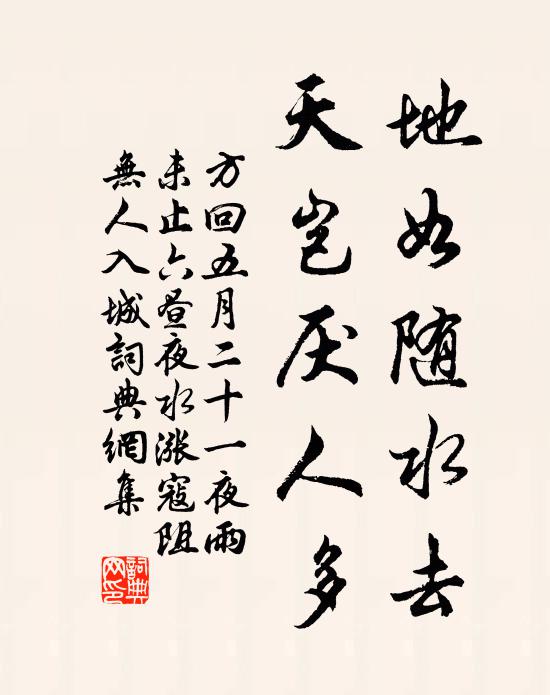 地如随水去
天岂厌人多
方回五月二十一夜雨
未止六昼夜水漲寇阻
無人入城詞典網集
詞典
网印